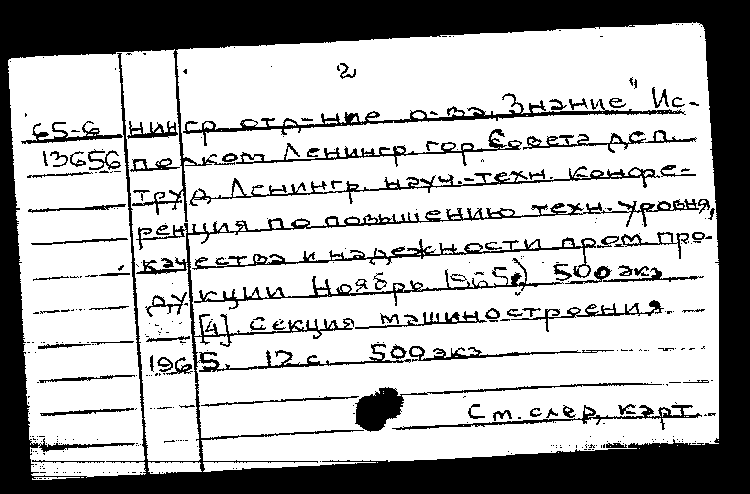 2
65-6 нингр. отд-ние о-ва „Знание". Ис-
13656 полком Ленингр. гор. Совета деп.
труд. Ленингр. науч.-техн. конфе-
ренция по повышению техн. уровня,
качества и надежности пром. про-
дукции. Ноябрь 1965.) 500 экз.
[4]. Секция машиностроения.
1965. 12 с. 500 экз.
См. след. карт.